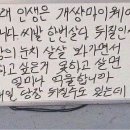 래 인생은 개상마이웨이
나나 씨발 한번살다 뒤질인생
의 눈치 살살 봐가면서
하고싶은거 못하고 살면
얼마나 억울합니까
내일 당장 뒤질수도 있는데